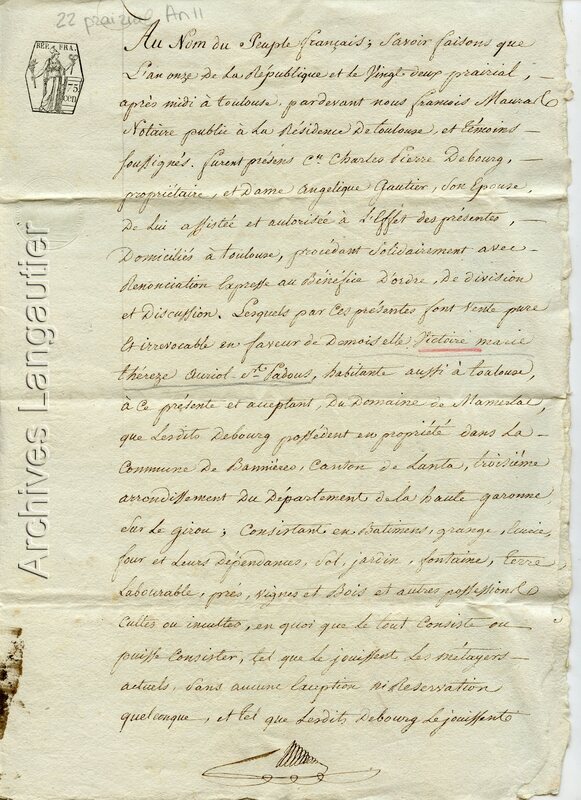 22 prairial An 11
REP. FRA.
75
CEN
Au Nom du Peuple français; Savoir faisons que
L'an onze de la République et le Vingt deux prairial,
après midi à toulouse, pardevant nous françois Maurat
Notaire public à La Résidence de toulouse, et témoins
soussignés. furent présens C.en Charles Pierre Debourg,
propriétaire, et Dame Angelique Gautier, Son Epouse,
de Lui assistée et autorisée à L'Effet des presentes,
Domiciliés à toulouse, procédant Solidairement avec
Renonciation Expresse au Bénéfice D'ordre, de division
et Discussion. Lesquels par ces présentes font Vente pure
Et irrevocable en faveur de Demoiselle Victoire marie
thérèze Auriol, habitante aussi à toulouse,
à ce présente et acceptant, Du Domaine de
que Lesdits Debourg possédent en propriété dans La
Commune de Bannières, Canton de Lanta, troisième
arrondissement Du Département de la haute garonne
Sur le girou; Consistant en Batimens, grange,
four et Leurs Dépendances, Sol, jardin, fontaine, terre
Labourable, prés, vignes et Bois et autres possessions
Cultes ou incultes, en quoi que le tout Consiste ou
puisse Consister, tel que Le jouissent Les métayers
actuels, Sans aucune Exception ni Reservation
quelconque, et tel que Lesdits Debourg Le jouissent
Archives Langautier